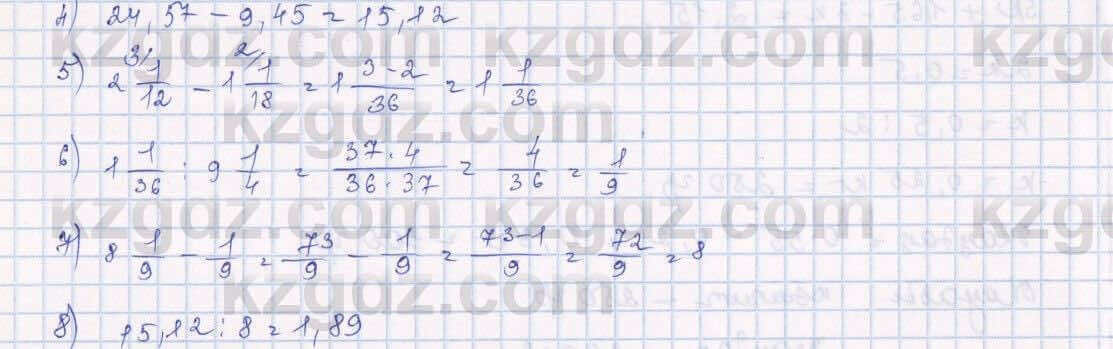 4) 24,57 - 9,45 = 15,12
5) 2 3/ 1/12 - 1 2/ 1/18 = 1 (3-2)/36 = 1 1/36
6) 1 1/36 : 9 1/4 = (37·4)/(36·37) = 4/36 = 1/9
7) 8 1/9 - 1/9 = 73/9 - 1/9 = (73-1)/9 = 72/9 = 8
8) 15,12 : 8 = 1,89
kzgdz.com kzgdz.com kz
kzgdz.com
kzgdz.com kzgdz.com kz
kzgdz.com